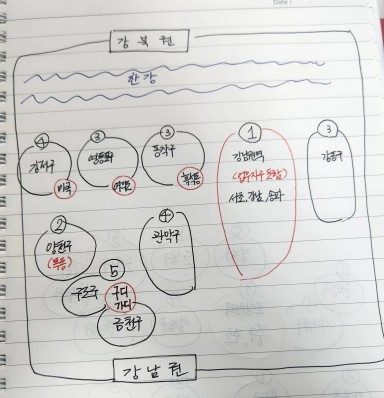 강북권
한강
④
강서구
마곡
③
영등포
여의도
③
동작구
흑석동
①
강남권역
(업무지구 포함)
서초, 강남, 송파
③
강동구
②
양천구
(목동)
④
관악구
⑤
구로구
구디
가디
금천구
강남권